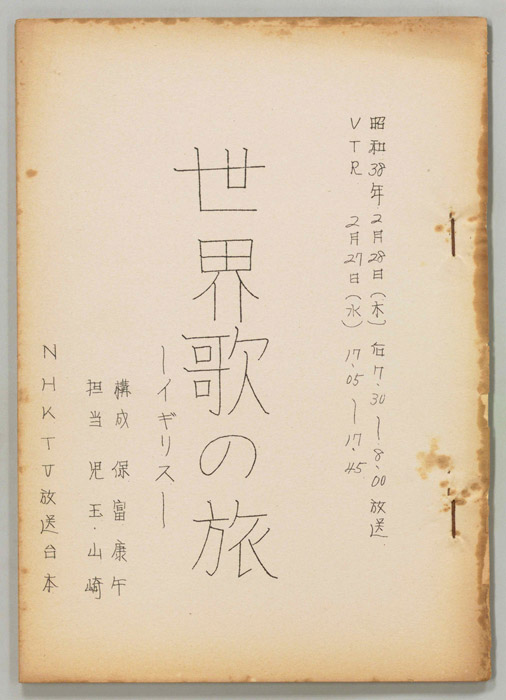 昭和38年2月28日(木)后7.30〜8.00放送
VTR 2月27日(水) 17.05〜17.45
世界歌の旅
ーイギリスー
構成 保富康午
担当 児玉・山崎
NHKTV放送台本